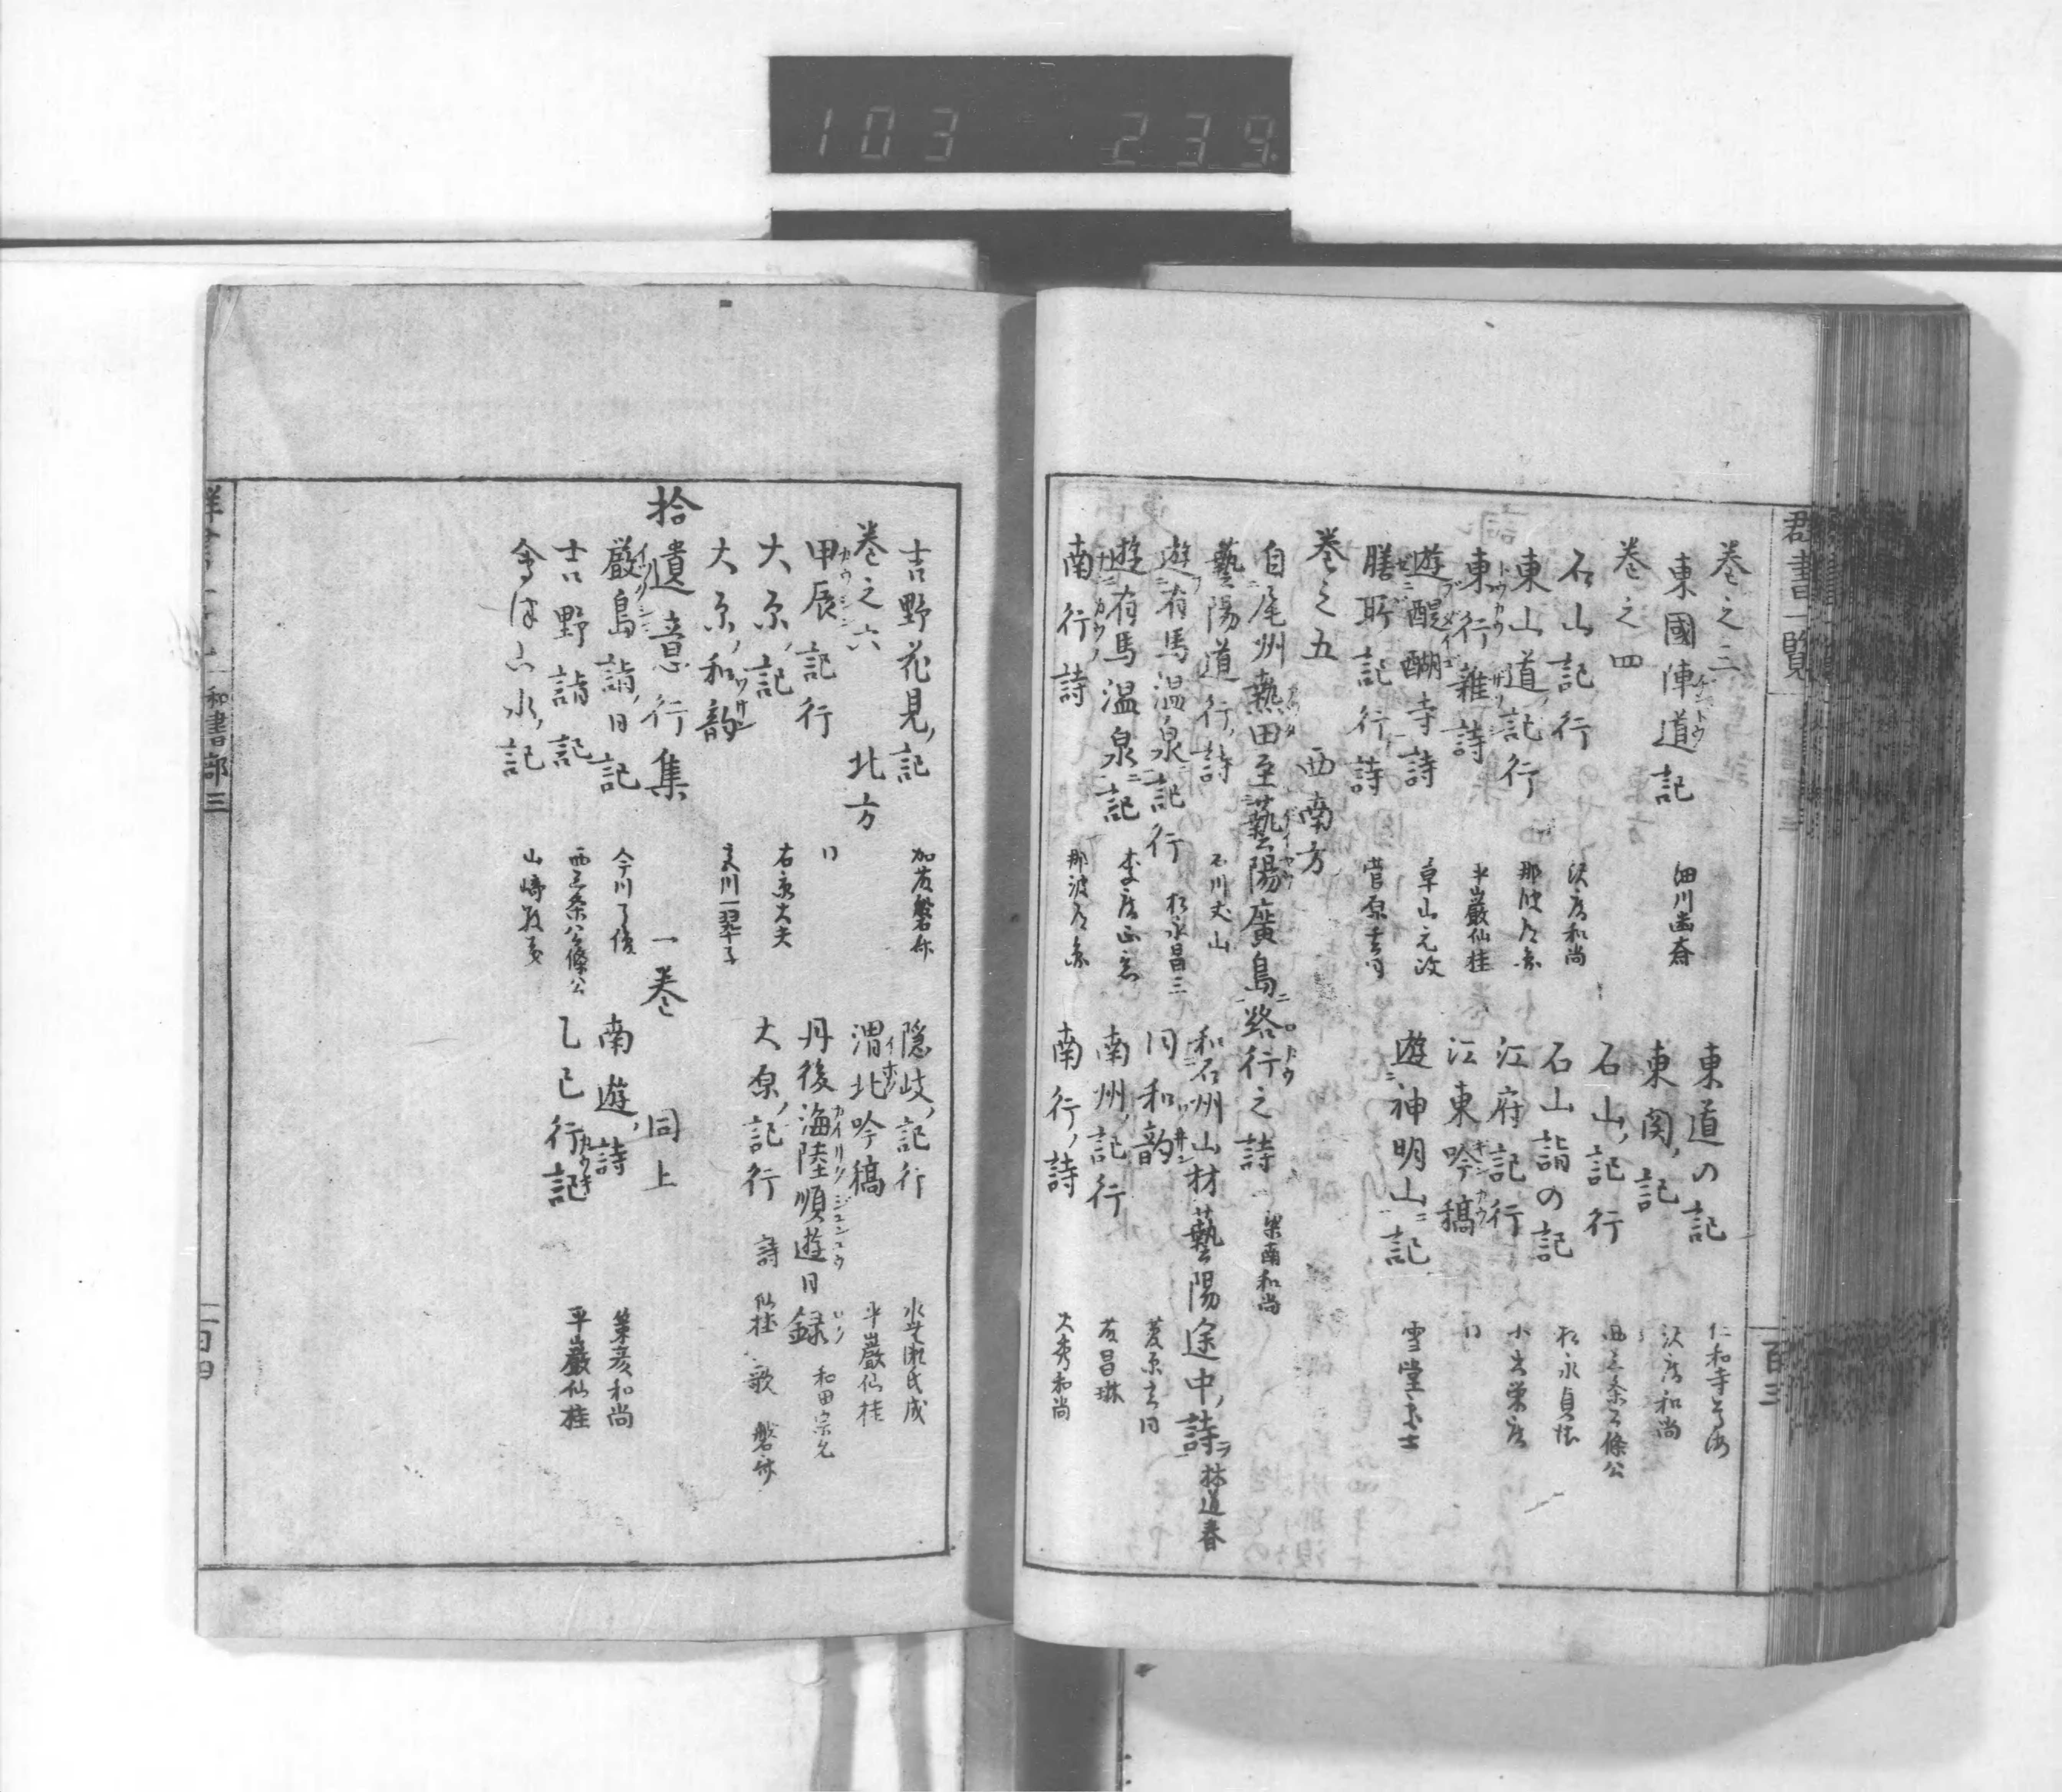 103 239
群書一覧
百三
巻之三
東國陣道記 細川幽斎 東道の記 仁和寺尊海
東関記 沢庵和尚
巻之四
石山記行 西三条公條公
石山記行 沢庵和尚 石山詣の記 松永貞徳
東山道記行 那波道円 江府記行 小出栄庵
東行雑詩 平巌仙桂 江東吟稿 同
遊醍醐寺詩 草山元政 遊神明山記 雪堂居士
膳所記行詩 菅原玄同
巻之五 西南方
自尾州熱田至藝陽廣島路行之詩 梁南和尚
藝陽道行詩 石川丈山 和石州山村藝陽途中詩 林道春
遊有馬温泉記行 松永昌三 同和韵 菱原玄同
遊有馬温泉記 南州記行
南行詩 那波道円 南行詩 大秀和尚
吉野花見記 加茂磐斎 隠岐記行 水無瀬氏成
巻之六 北方 渭北吟稿 平巌仙桂
甲辰記行 同 丹後海陸順遊日録 和田宗允
大原記 右京大夫 大原記行 詩仙桂 歌磐斎
大原和韵
拾遺意行集 一巻 同上
厳島詣日記 今川了俊 南遊詩 策彦和尚
吉野詣記 西三条公條公 乙巳行記 平巌仙桂
山崎
和書部三